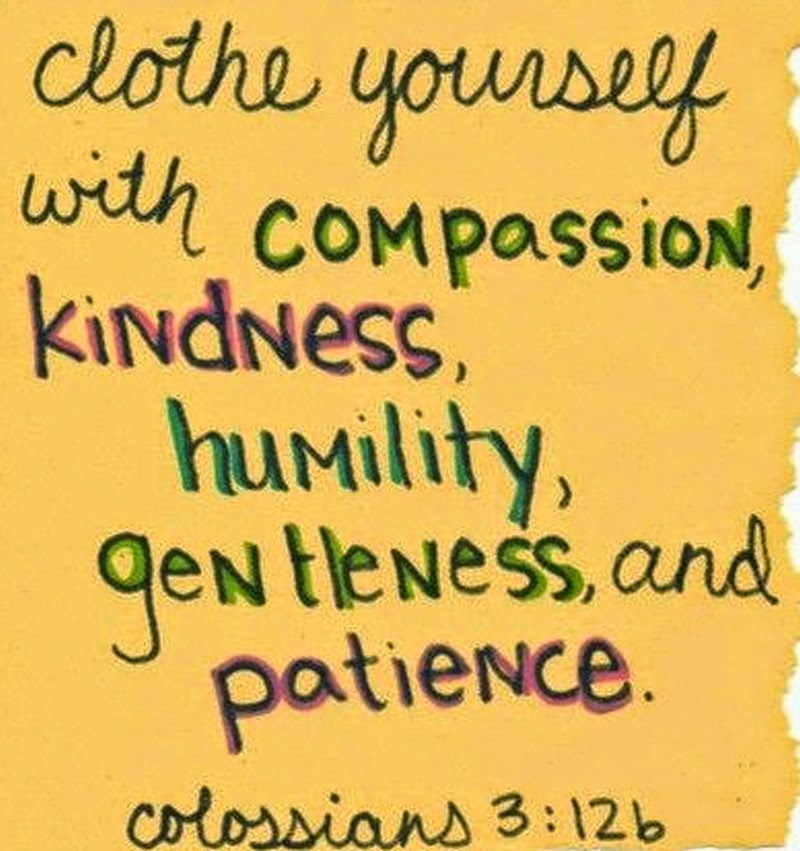 clothe yourself
with compassion,
kindness,
humility,
gentleness, and
patience.
colossians 3:12b